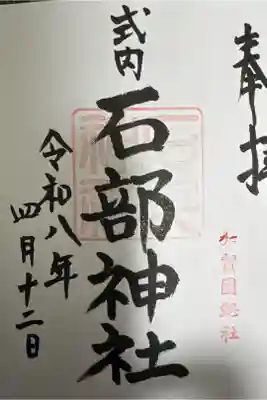 奉拝
加賀国総社
式内
石部神社
令和八年
四月十二日